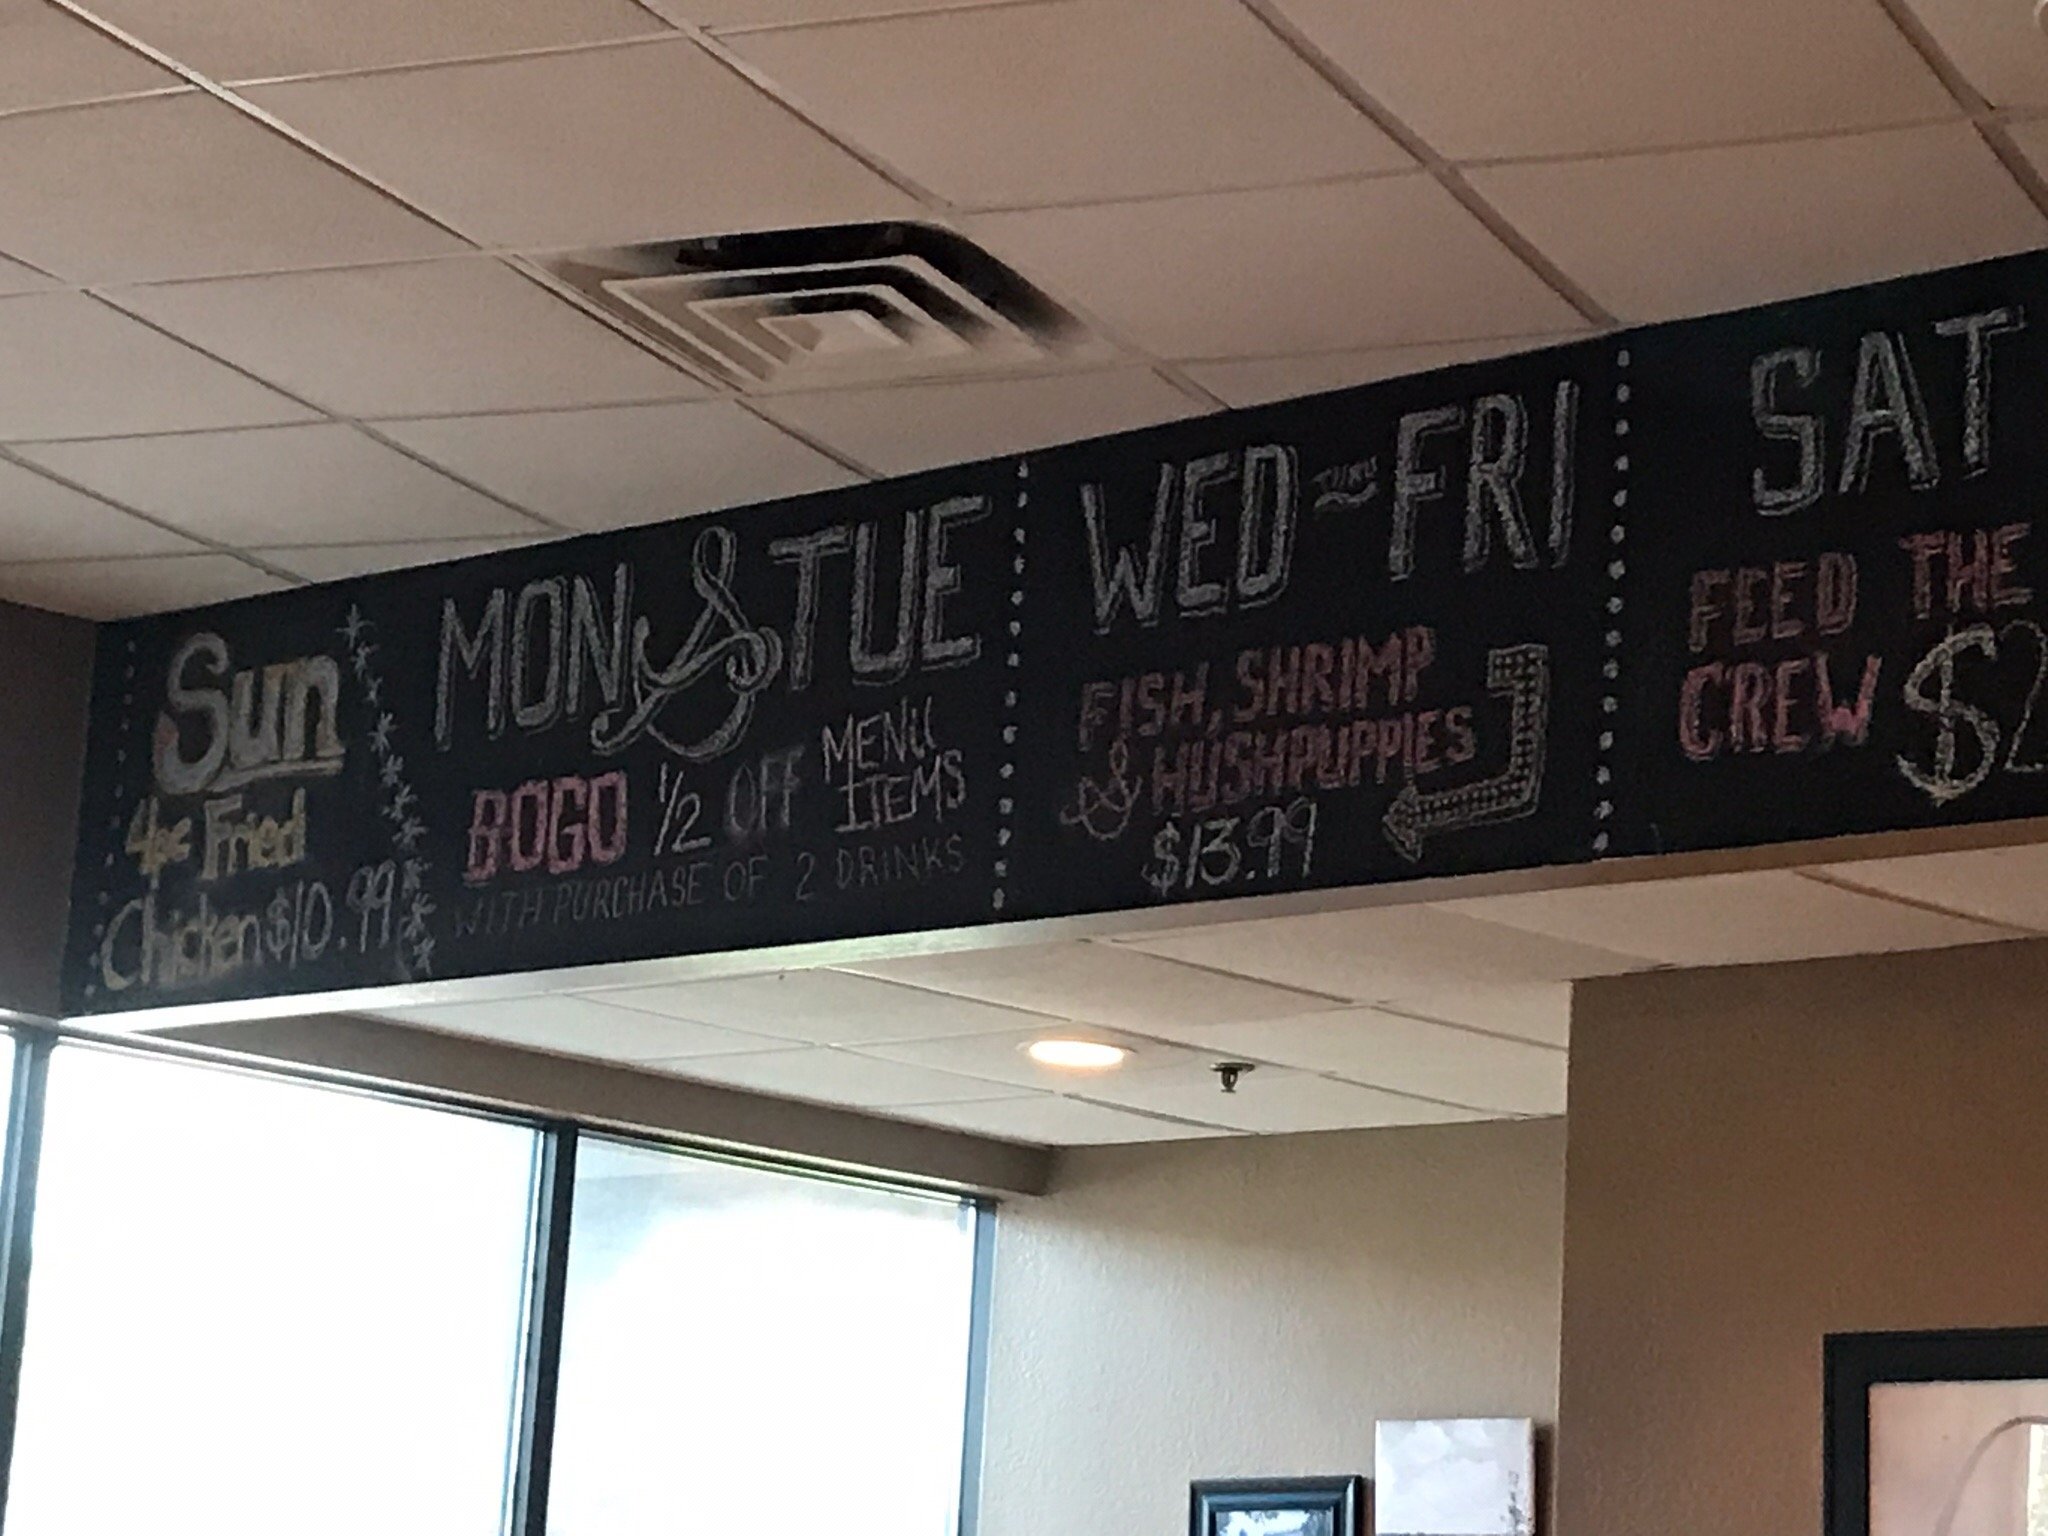 Sun
4pc Fried
Chicken $10.99
MON & TUE
BOGO 1/2 OFF MENU ITEMS
WITH PURCHASE OF 2 DRINKS
WED THRU FRI
FISH, SHRIMP
& HUSHPUPPIES
$13.99
SAT
FEED THE
CREW $2